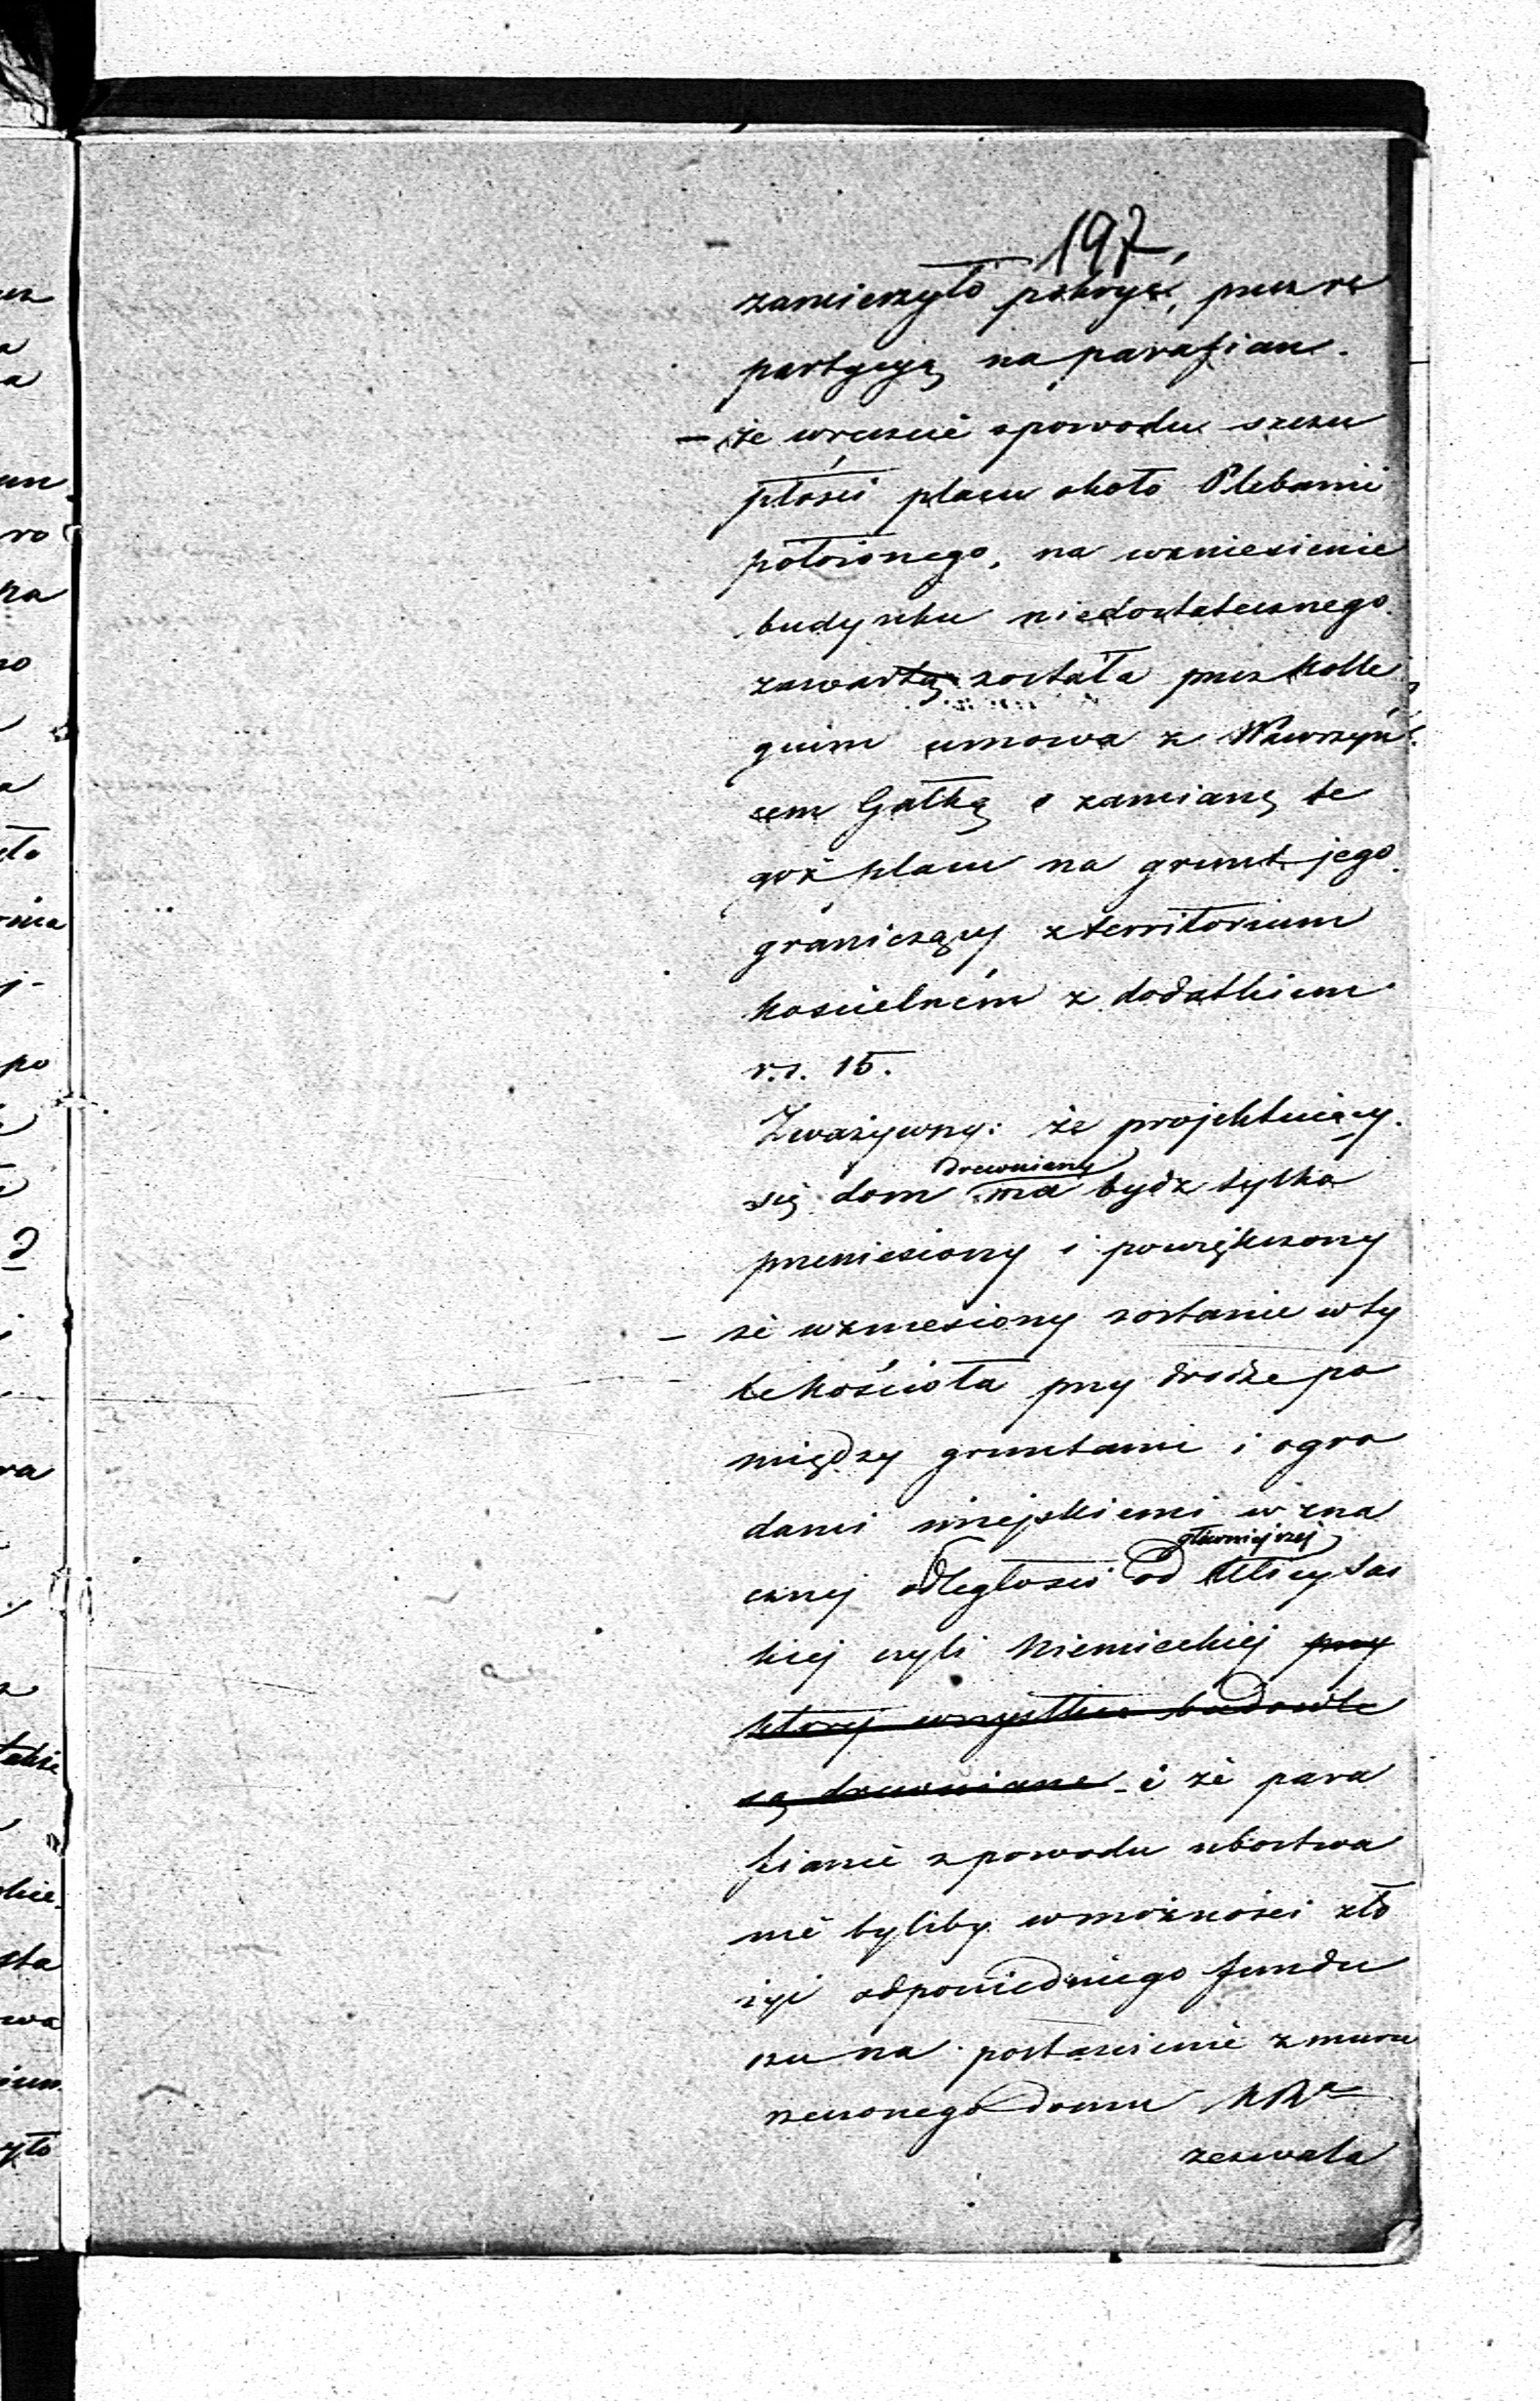 197.
zamierzyło pokryć, przez re
partycyją na parafian.
– że wreszcie spowodu szczu
płości placu około Plebanii
położonego, na wzniesienie
budynku niedostatecznego.
zawartą została przez Kolle
gium umowa z Wawrzyń
cem Gałką o zamianę te
goż placu na grunt jego
graniczący z territorium
kościelném z dodatkiem
r.s. 15.
Zważywszy: że projektujący
drewniany
się dom ma bydź tylko
przeniesiony i powiększony
– że wzniesiony zostanie w ty
le kościoła przy drodze po
między gruntami i ogro
dami miejskiemi w zna
główniejszej
cznej odległości od Ulicy
kiej czyli Niemieckiej przy
której wszystkie budowle
są drewniane i że para
fianie z powodu ubóstwa
nie byliby w możności zło
żyć odpowiedniego fundu
szu na postawienie z muru
domu
zezwala
ro
na
po
ra
także
sta